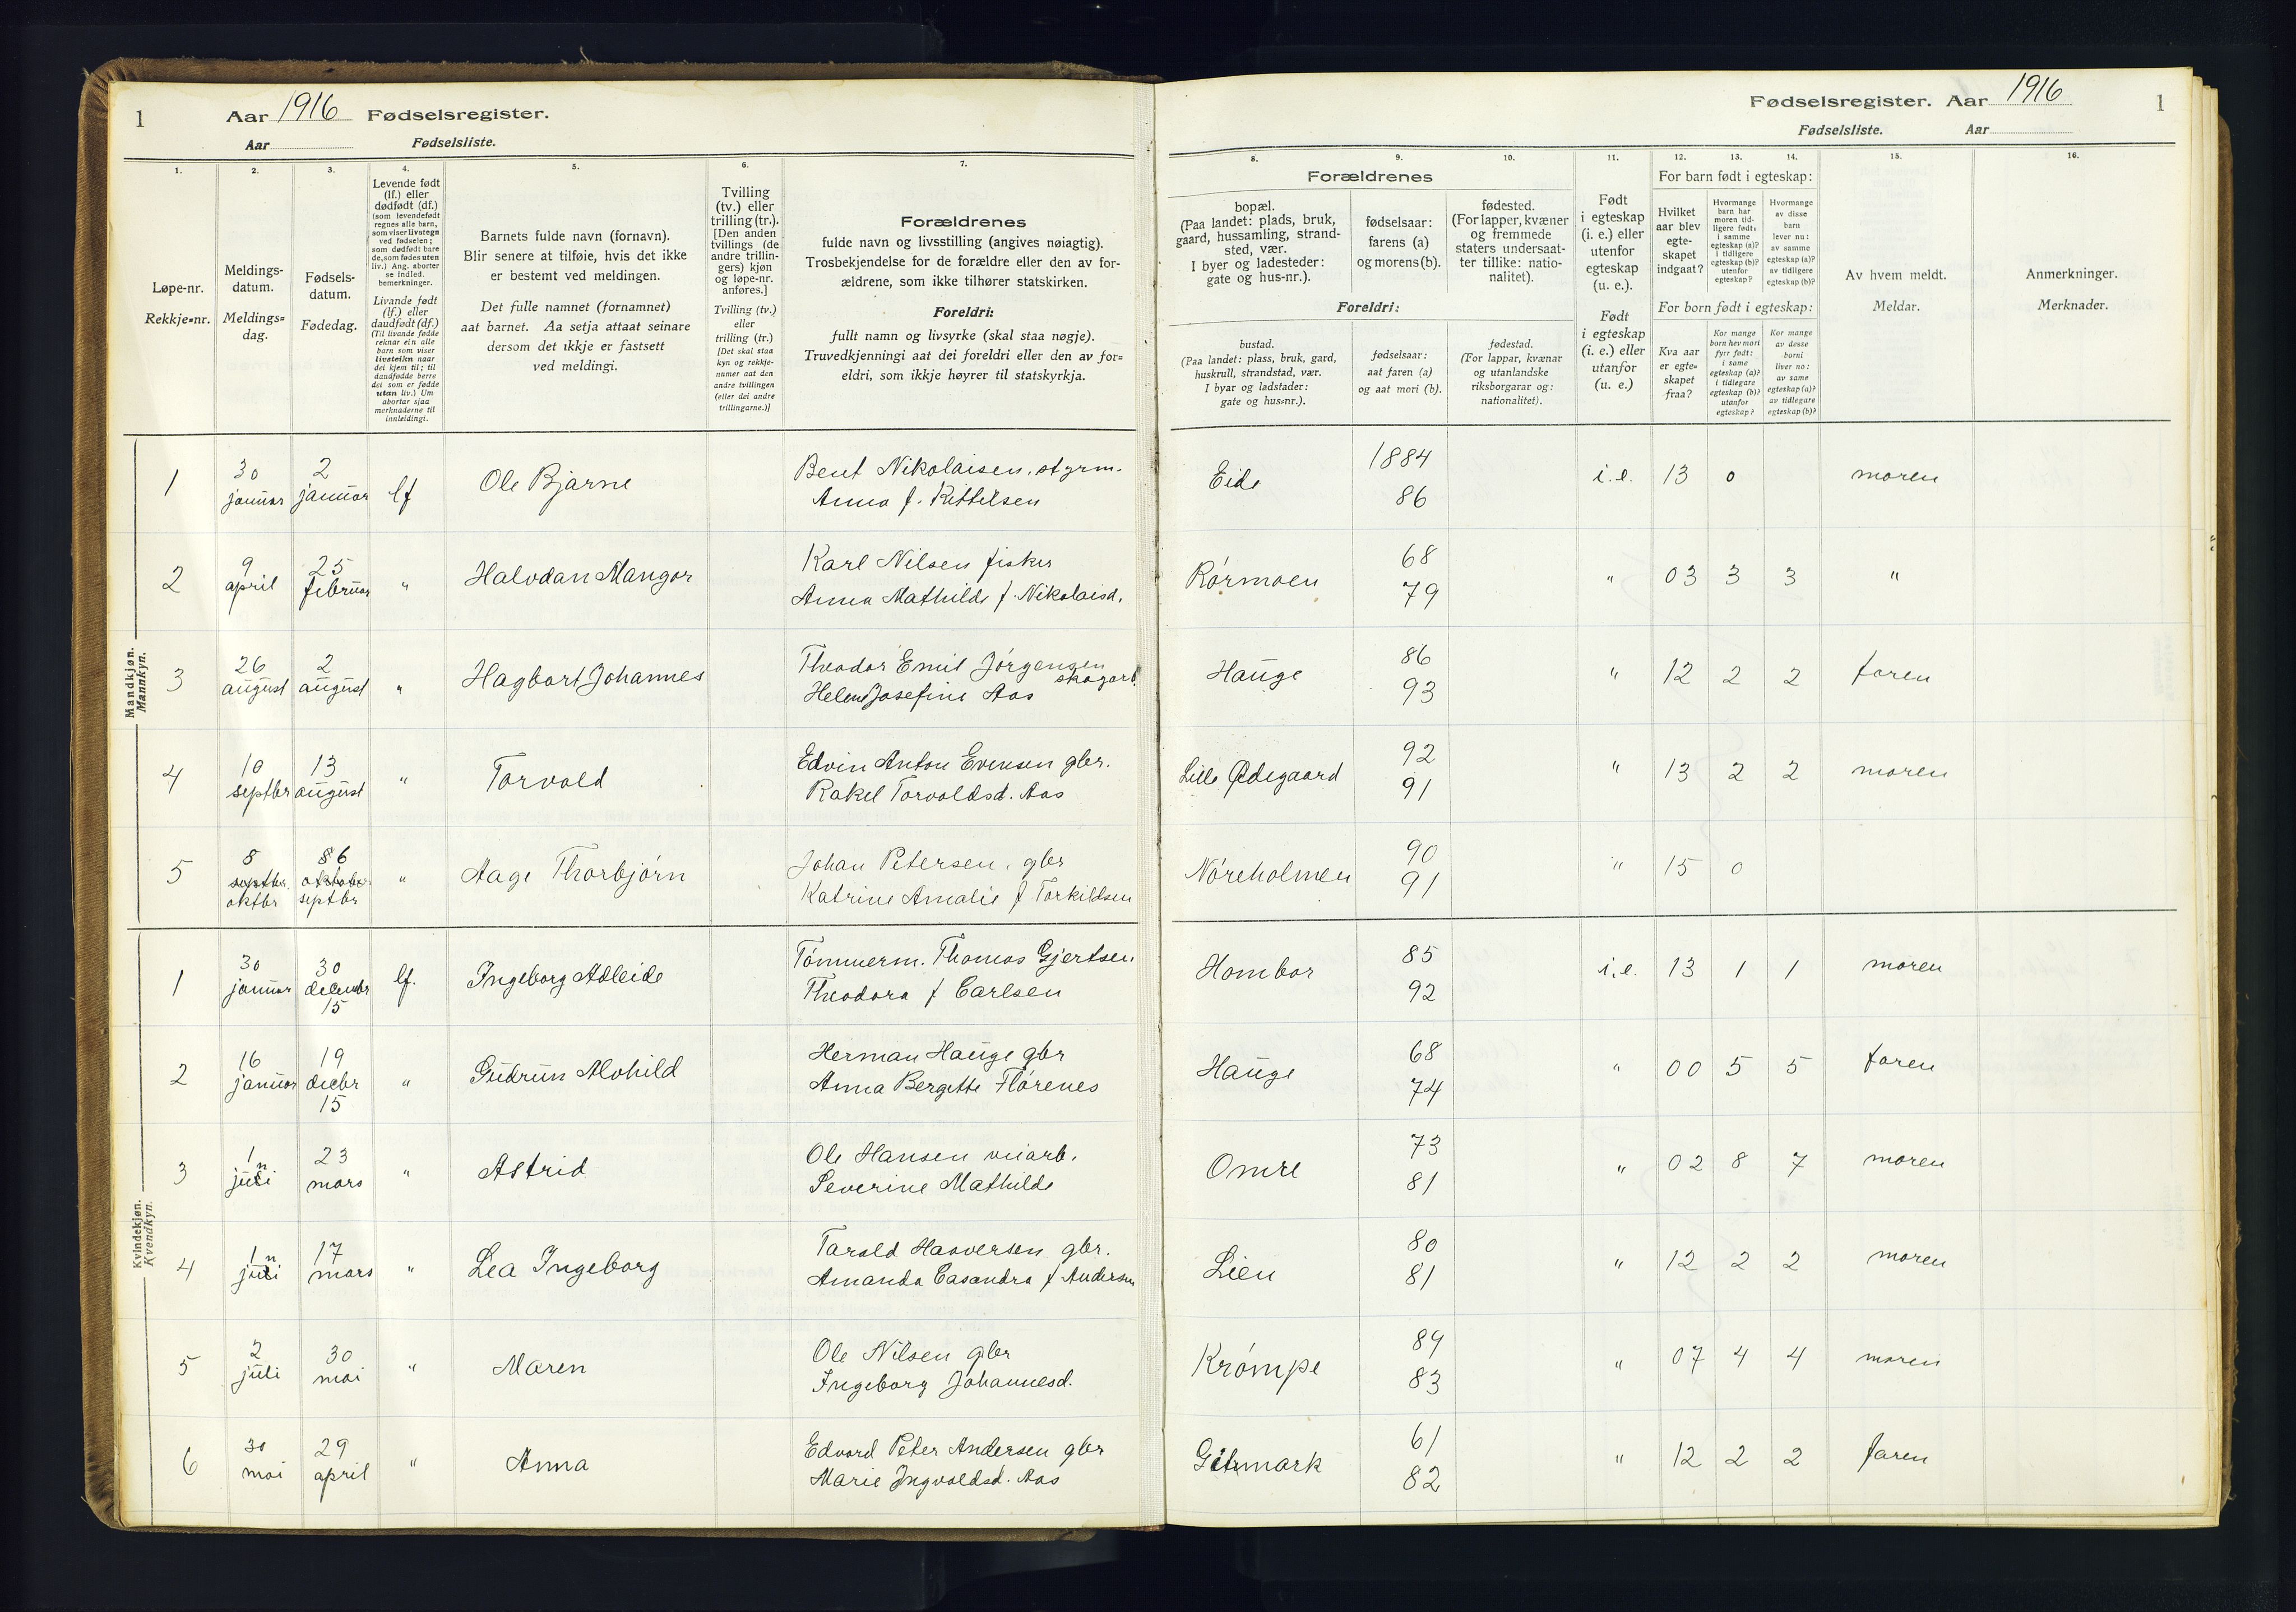 1
Aar 1916 Fødselsregister.
Aar Fødselsliste.
1.
2.
3.
4.
5.
6.
7.
Løpe-nr.
Rekkje=nr.
Meldings-
datum.
Meldings=
dag.
Fødsels-
datum.
Fødedag.
Levende født
(lf.) eller
dødfødt (df.)
(som levendefødt
regnes alle barn,
som viser livstegn
ved fødselen;
som dødfødt bare
de, som fødes uten
liv.) Ang. aborter
se indled.
bemerkninger.
Livande født
(lf.) eller
daudfødt (df.)
(Til livande fødde
reknar ein alle
barn som viser
livsteikn naar
dei kjem til; til
daudfødde berre
dei som er fødde
utan liv.) Um
abortar sjaa
merknaderne til
innleidingi.
Barnets fulde navn (fornavn).
Blir senere at tilføie, hvis det ikke
er bestemt ved meldingen.
Det fulle namnet (fornamnet)
aat barnet. Aa setja attaat seinare
dersom det ikkje er fastsett
ved meldingi.
Tvilling
(tv.) eller
trilling (tr.).
[Den anden
tvillings (de
andre trillin-
gers) kjøn
og løpe-nr.
anføres.]
Tvilling (tv.)
eller
trilling (tr.)
[Det skal staa
kyn og rekkje-
numer aat den
andre tvillingen
(eller dei andre
trillingarne.)]
Forældrenes
fulde navn og livsstilling (angives nøiagtig).
Trosbekjendelse for de forældre eller den av for-
ældrene, som ikke tilhører statskirken.
Foreldri:
fullt namn og livsyrke (skal staa nøgje).
Truvedkjenningi aat dei foreldri eller den av for=
eldri, som ikkje høyrer til statskyrkja.
Mandkjøn.
Mannkyn.
1 30 januar 2 januar lf Ole Bjarne Bent Nikolaisen, styrm.
Anna f. Kittelsen
2 9 april 25 februar " Halvdan Mangor Karl Nilsen fisker
Anna Mathilde f. Nikolaisd.
3 26 august 2 august " Hagbart Johannes Theodor Emil Jørgensen
skogarb.
Helene Josefine Aas
4 10 septbr 13 august " Torvald Edvin Anton Evensen gbr.
Rakel Torvaldsd. Aas
5 8 septbr. oktbr 8 6 oktober septbr " Aage Thorbjørn Johan Petersen, gbr
Katrine Amalie f Torkildsen
Kvindekjøn.
Kvendkyn.
1 30 januar 30 decembr 15 lf. Ingeborg Adleide Tømmerm. Thomas Gjertsen
Theodora f Carlsen
2 16 januar 19 decbr 15 " Gudrun Alvhild Herman Hauge gbr
Anna Bergitte Flørenes
3 1 juni 23 mars " Astrid Ole Hansen veiarb.
Severine Mathilde
4 1 juni 17 mars " Lea Ingeborg Tarald Haaversen gbr.
Amanda Casandra f Andersen
5 2 juli 30 mai " Maren Ole Nilsen gbr
Ingeborg Johannesd.
6 30 mai 29 april " Anna Edvard Peter Andersen gbr
Marie Ingvaldsd. Aas
Fødselsregister. Aar 1916
1
Fødselsliste. Aar
8.
9.
10.
11.
12.
13.
14.
15.
16.
Forældrenes
bopæl.
(Paa landet: plads, bruk,
gaard, hussamling, strand-
sted, vær.
I byer og ladesteder:
gate og hus-nr.).
fødselsaar:
farens (a)
og morens (b).
fødested.
(For lapper, kvæner
og fremmede
staters undersaat-
ter tillike: natio-
nalitet).
Foreldri:
bustad.
(Paa landet: plass, bruk, gard,
huskrull, strandstad, vær.
I byar og ladstader:
gate og hus=nr.).
fødselsaar:
aat faren (a)
og aat mori (b).
fødestad.
(For lappar, kvænar
og utanlandske
riksborgarar og:
nationalitet).
Født
i egteskap
(i. e.) eller
utenfor
egteskap
(u. e.).
Født
i egteskap
(i. e.) eller
utanfor
(u. e.)
For barn født i egteskap:
Hvilket
aar blev
egte-
skapet
indgaat?
Hvormange
barn har
moren tid-
ligere født:
i samme
egteskap (a)?
i tidligere
egteskap (b)?
utenfor
egteskap?
Hvormange
av disse
barn
lever nu:
av samme
egteskap (a)?
av tidligere
egteskap (b)?
For born født i egteskap:
Kva aar
er egte=
skapet
fraa?
Kor mange
born hev mori
fyrr født:
i same
egteskap (a)?
i tidlegare
egteskap (b)?
utanfor
egteskap?
Kor mange
av desse
borni
liver no:
av same
egteskap (a)?
av tidlegare
egteskap (b)?
Av hvem meldt.
Meldar.
Anmerkninger.
Merknader.
Eide 1884 86 i.e. 13 0 moren
Rørmoen 68 79 " 03 3 3 "
Hauge 86 93 " 12 2 2 faren
Lille Ødegaard 92 91 " 13 2 2 moren
Nøreholmen 90 91 " 15 0
Hombor 85 92 i.e. 13 1 1 moren
Hauge 68 74 " 00 5 5 faren
Omre 73 81 " 02 8 7 moren
Lien 80 81 " 12 2 2 moren
Krømpe 89 83 " 07 4 4 moren
Gitmark 61 82 " 12 2 2 faren